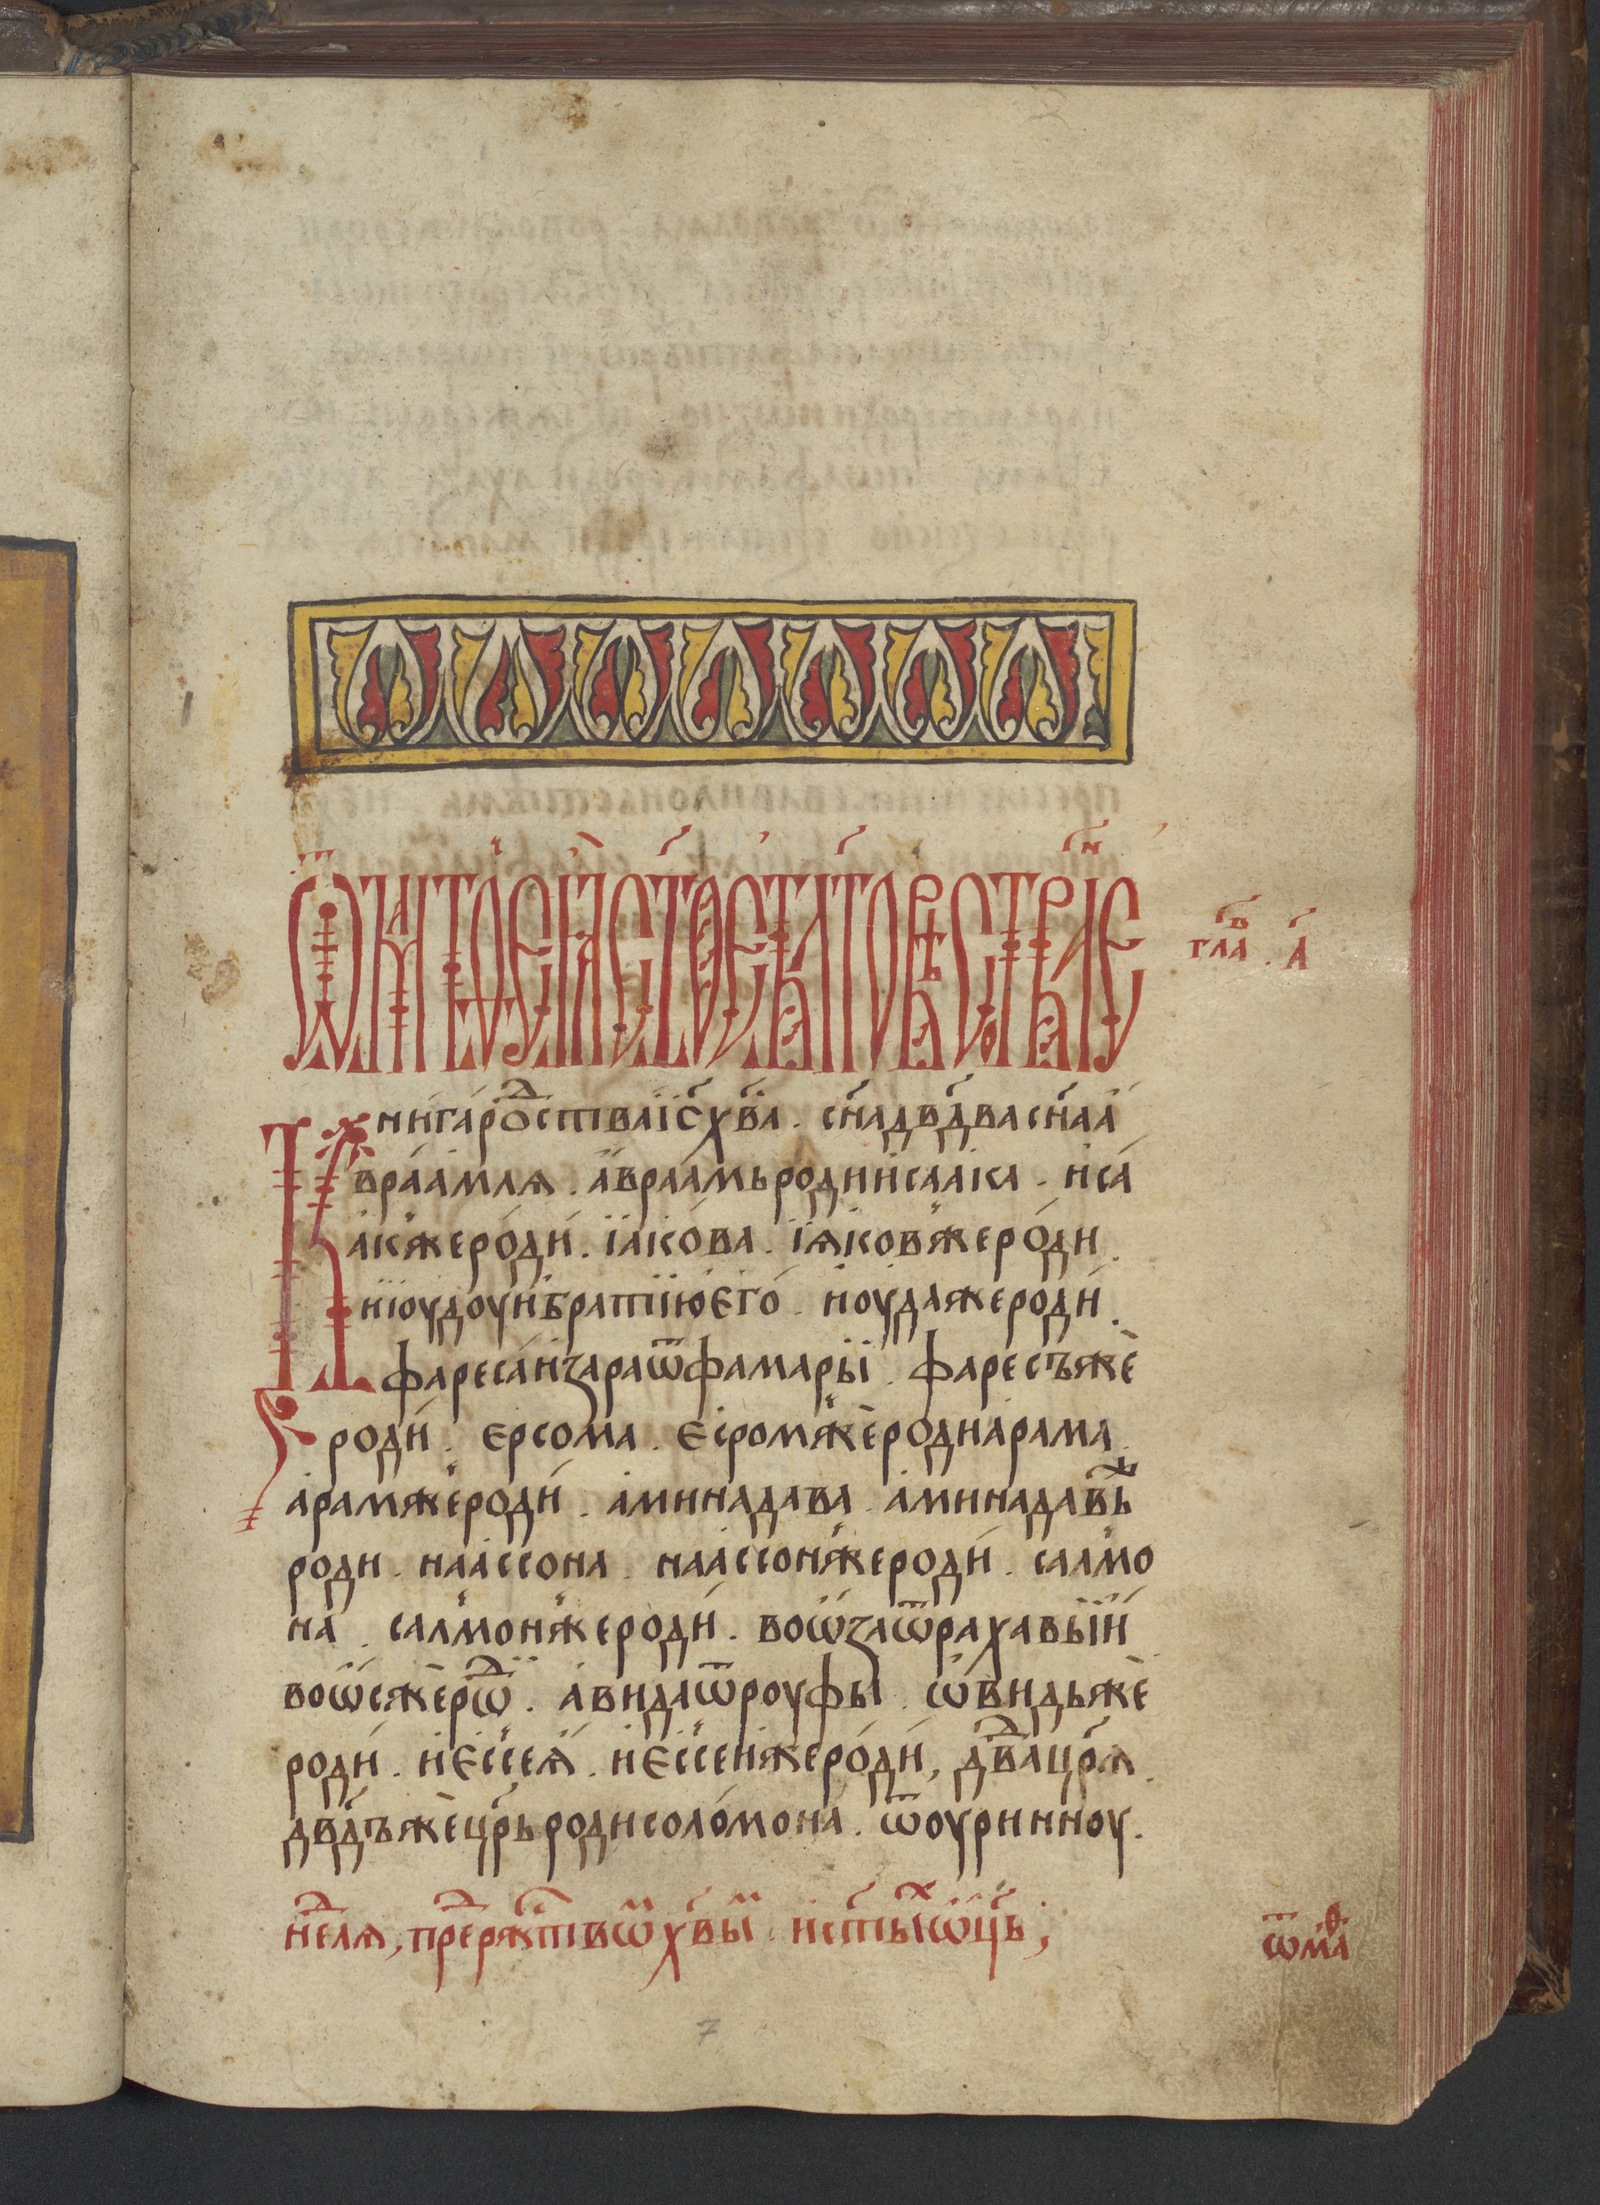 Ѿ матѳеꙗ ст҃ое бл҃говѣствоваⷩ҇їе
глаⷡ҇ . а҃
Книга роⷣства і҆с҃ х҃ва . сн҃а дв҃два сн҃а а҆
враа́млѧ . а҆враа́мь роди и҆саа́ка . и҆саа́
а҆кже роди . і҆а́кова . і҆ѧковже роди .
и҆ і҆оудоу и҆ братїю є҆го . и҆оуда же роди .
фареса и҆ зара ѿ фамары . фаресъ же
роди . єрсома . єсромже роди а҆рама .
а҆рамже роди . а҆минадава . а҆минадавьⷤ
роди . наа́ссона . наа́ссонже роди . салмо
на . салмонже роди . воѡза ѿ рахавы и҆
воѡсже рѡⷣ . а҆вида ѿ роуфы . ѡ҆видь же
роди . и҆єссеꙗ . и҆єссеиже роди , дв҃да цр҃ѧ .
дв҃дъ же цр҃ь роди соломона . ѿ оуриноу .
неⷣлѧ , преⷣ ржⷭ҇твѡⷨ хв҃ыⷨ . и҆ ст҃ыⷯ ѡ҆ц҃ъ ;
ѿ маⷴ҇
7